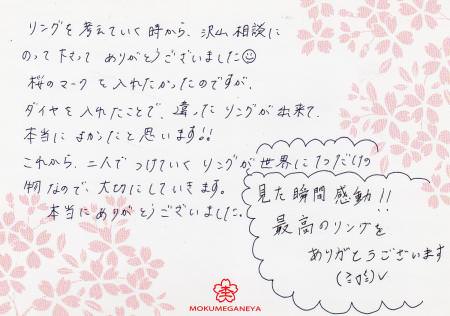 リングを考えていく時から、沢山相談に
のって下さって ありがとうございました☺
桜のマークを入れたかったのですが、
ダイヤを入れたことで、違ったリングが出来て、
本当によかったと思います!!
これから、二人でつけていくリングが世界に1つだけの
物なので、大切にしていきます。
本当にありがとうございました。
見た瞬間感動!!
最高のリングを
ありがとうございます
MOKUMEGANEYA